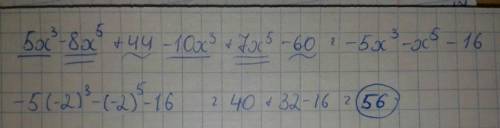 5x³-8x⁵+44-10x³+7x⁵-60=-5x³-x⁵-16
-5(-2)³-(-2)⁵-16 = 40+32-16=56